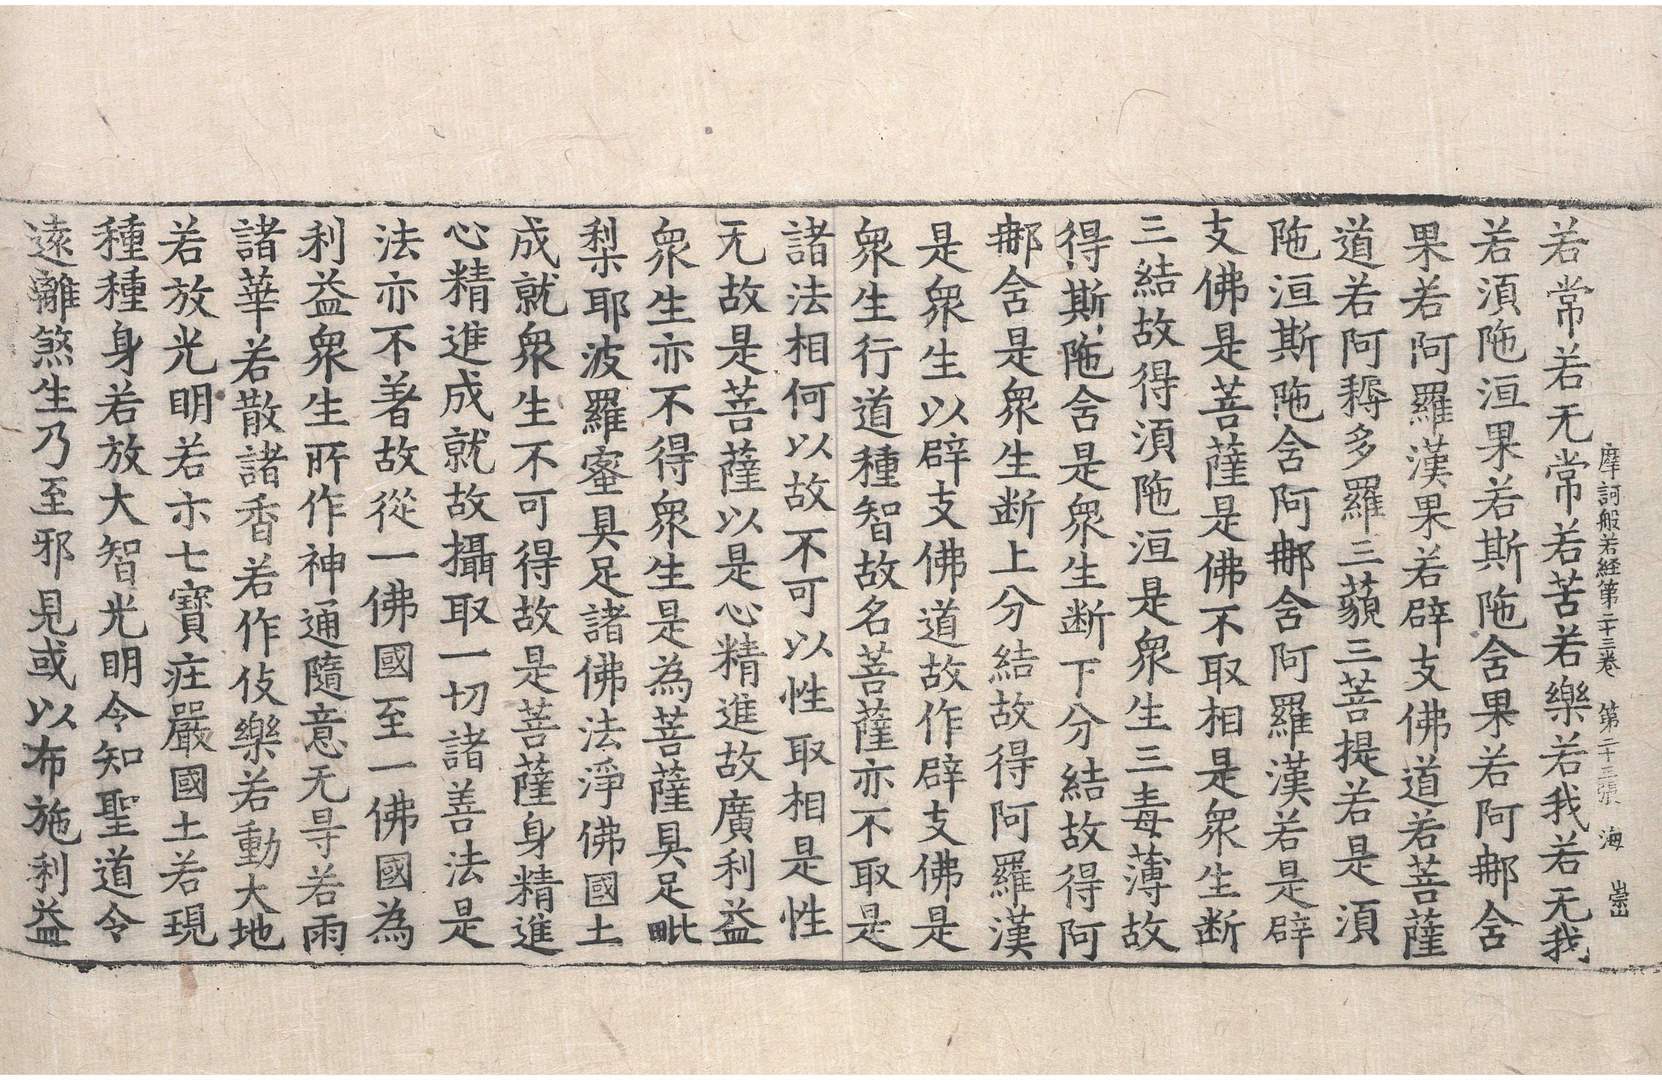 摩訶般若経第二十三巻　第二十三張　海　崇
若常若无常若苦若樂若我若无我
若湏陁洹果若斯陁含果若阿𨚗含
果若阿羅漢果若辟支佛道若菩薩
道若阿耨多羅三藐三菩提若是湏
陁洹斯陁含阿𨚗含阿羅漢若是辟
支佛是菩薩是佛不取相是衆生断
三結故得湏陁洹是衆生三毒薄故
得斯陁含是衆生断下分結故得阿
𨚗含是衆生断上分結故得阿羅漢
是衆生以辟支佛道故作辟支佛是
衆生行道種智故名菩薩亦不取是
諸法相何以故不可以性取相是性
无故是菩薩以是心精進故廣利益
衆生亦不得衆生是為菩薩具足毗
梨耶波羅蜜具足諸佛法淨佛國土
成就衆生不可得故是菩薩身精進
心精進成就故攝取一切諸善法是
法亦不著故從一佛國至一佛國為
利益衆生所作神通隨意无㝵若雨
諸華若散諸香若作伎樂若動大地
若放光明若示七寶莊嚴國土若現
種種身若放大智光明令知聖道令
遠離煞生乃至邪見或以布施利益